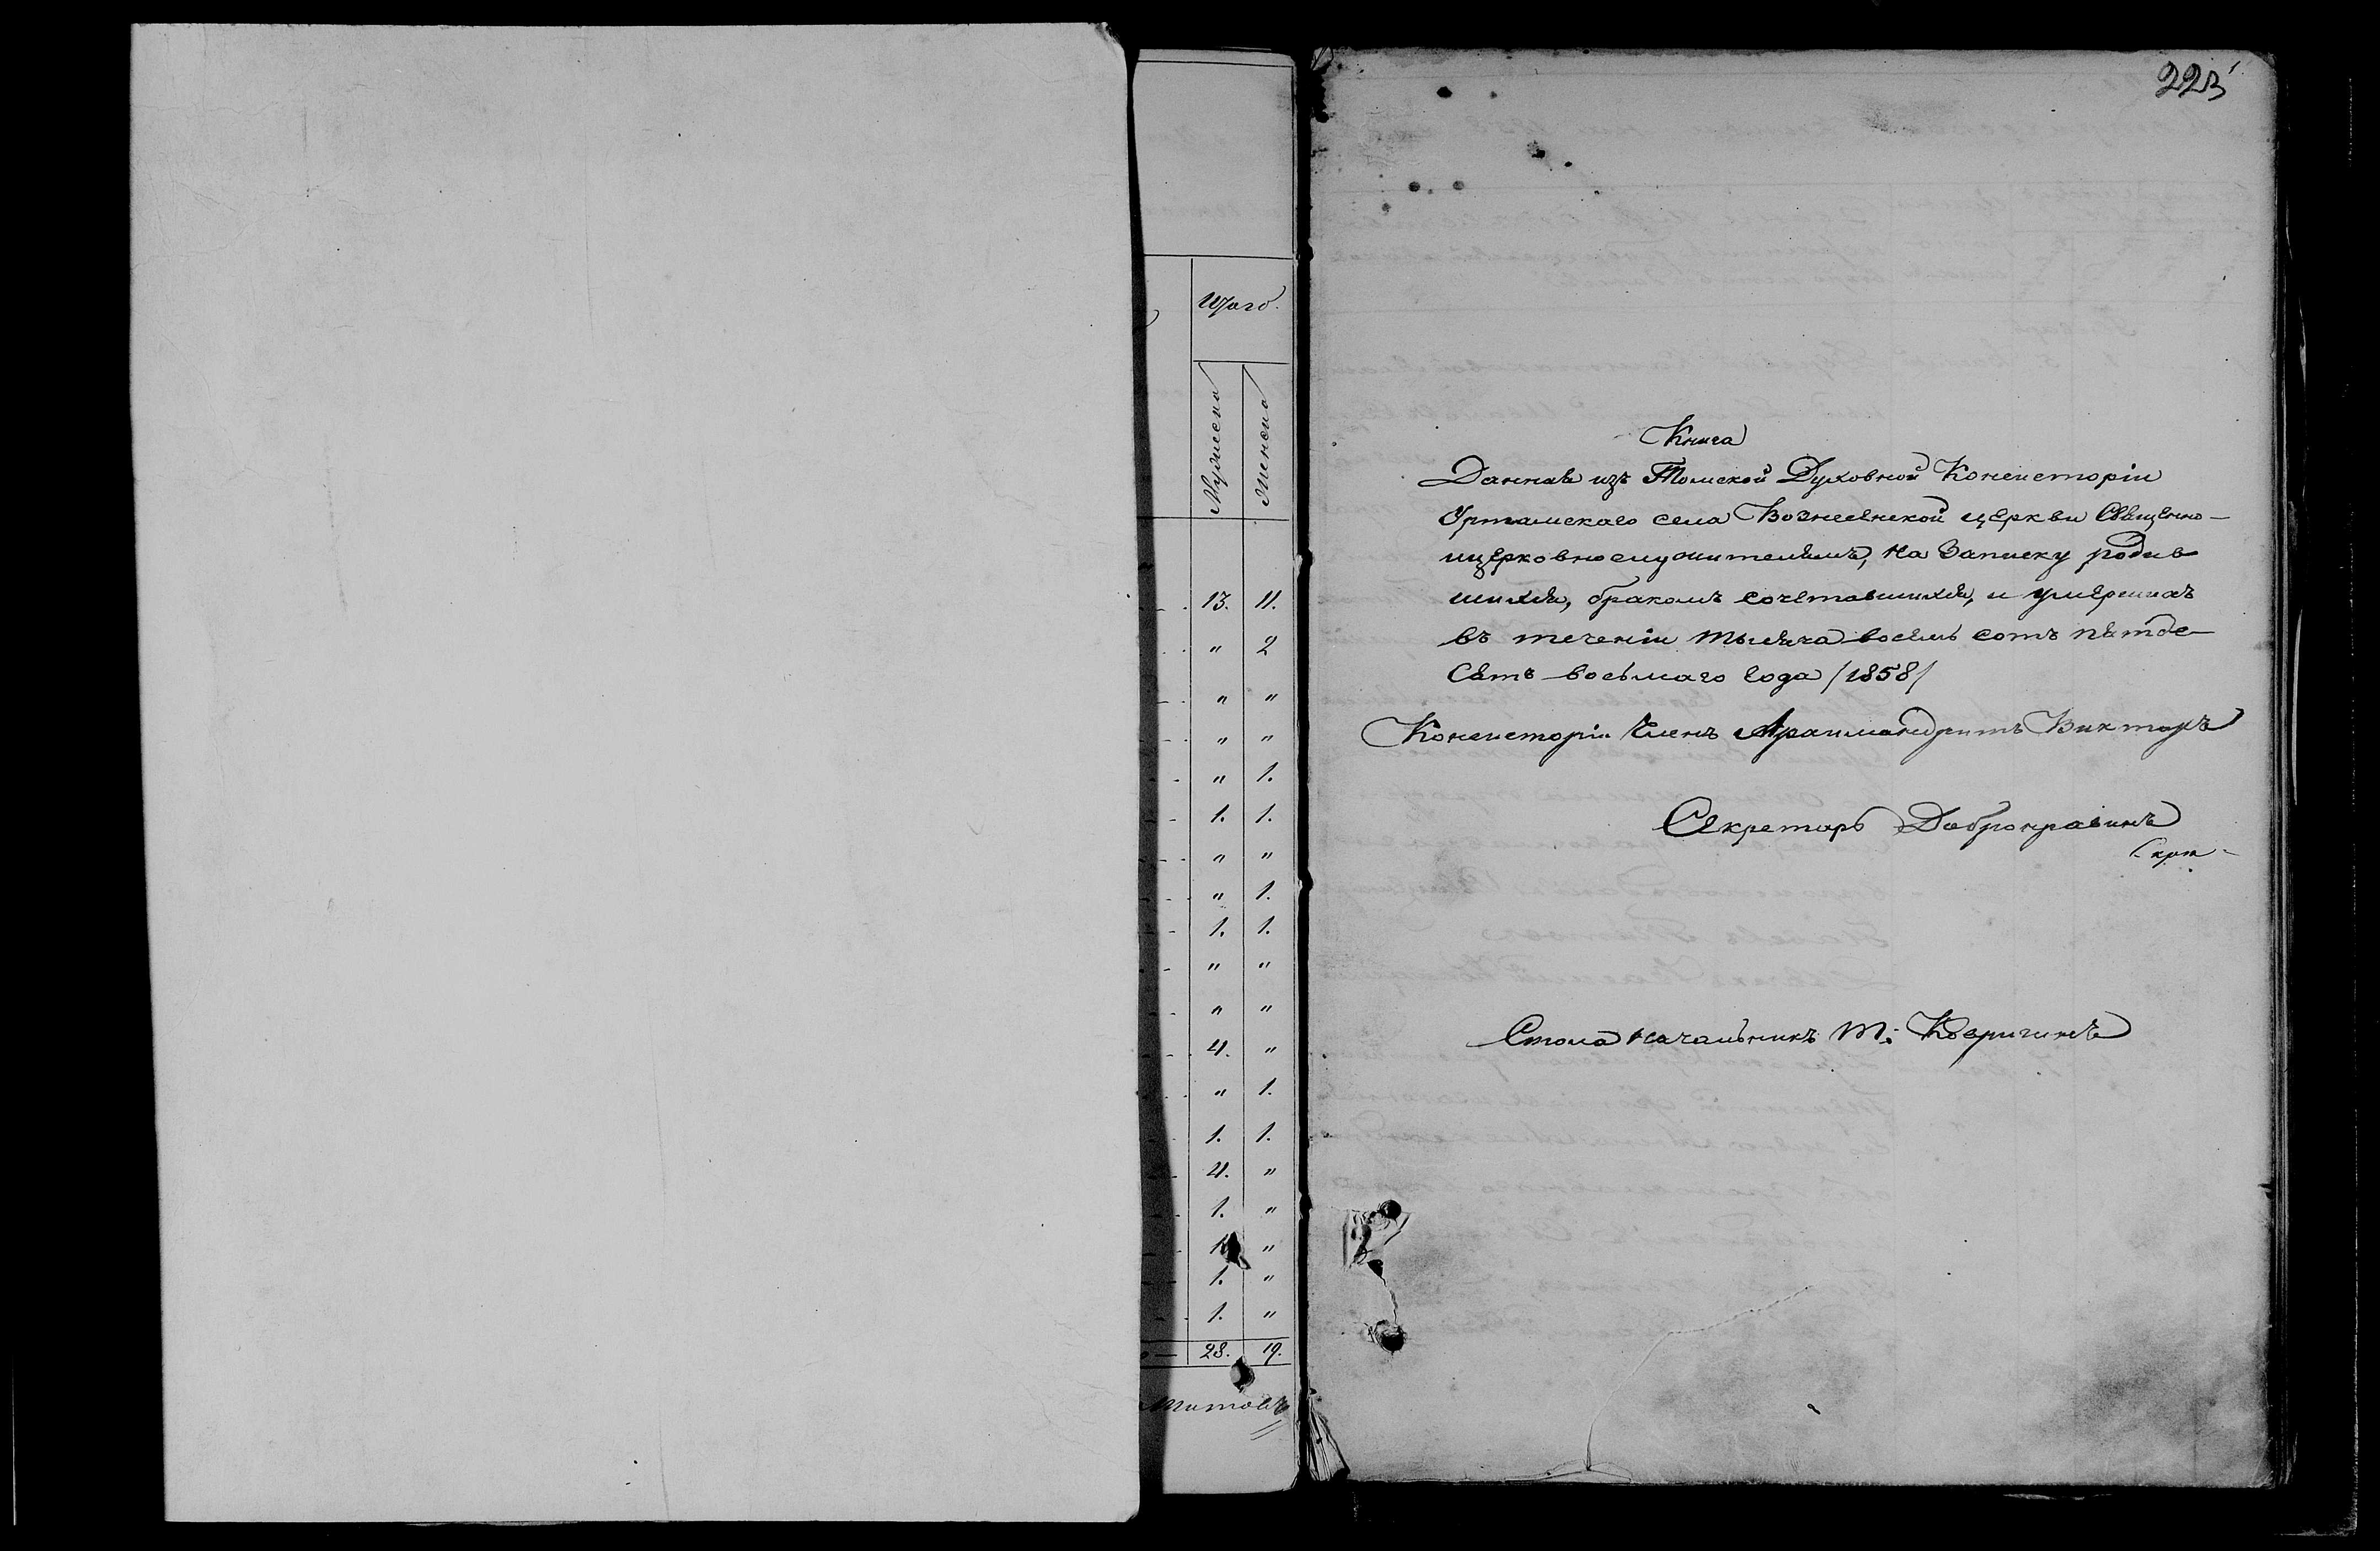 Итого.
Мужеска
Женска
13. 11.
" 2
" "
" "
" 1.
1. 1.
" "
" 1.
1. 1.
" "
" "
4. "
" 1.
1. 1.
4. "
1. "
1. "
1. "
1. "
28. 19.
Титовъ
223
Книга
Данная изъ Томской Духовной Консисторіи
Уртамскаго села Вознесенской церкви Священно-
ицерковнослужителямъ, на записку родив
шихся, бракомъ сочетавшихся, и умершихъ
въ теченіи тысяча восемь сотъ пятде-
сятъ восьмаго года /1858/
Консисторіи Членъ Архимандритъ Викторъ
Секретарь Добронравинъ
Столоначальникъ М: Ковригинъ